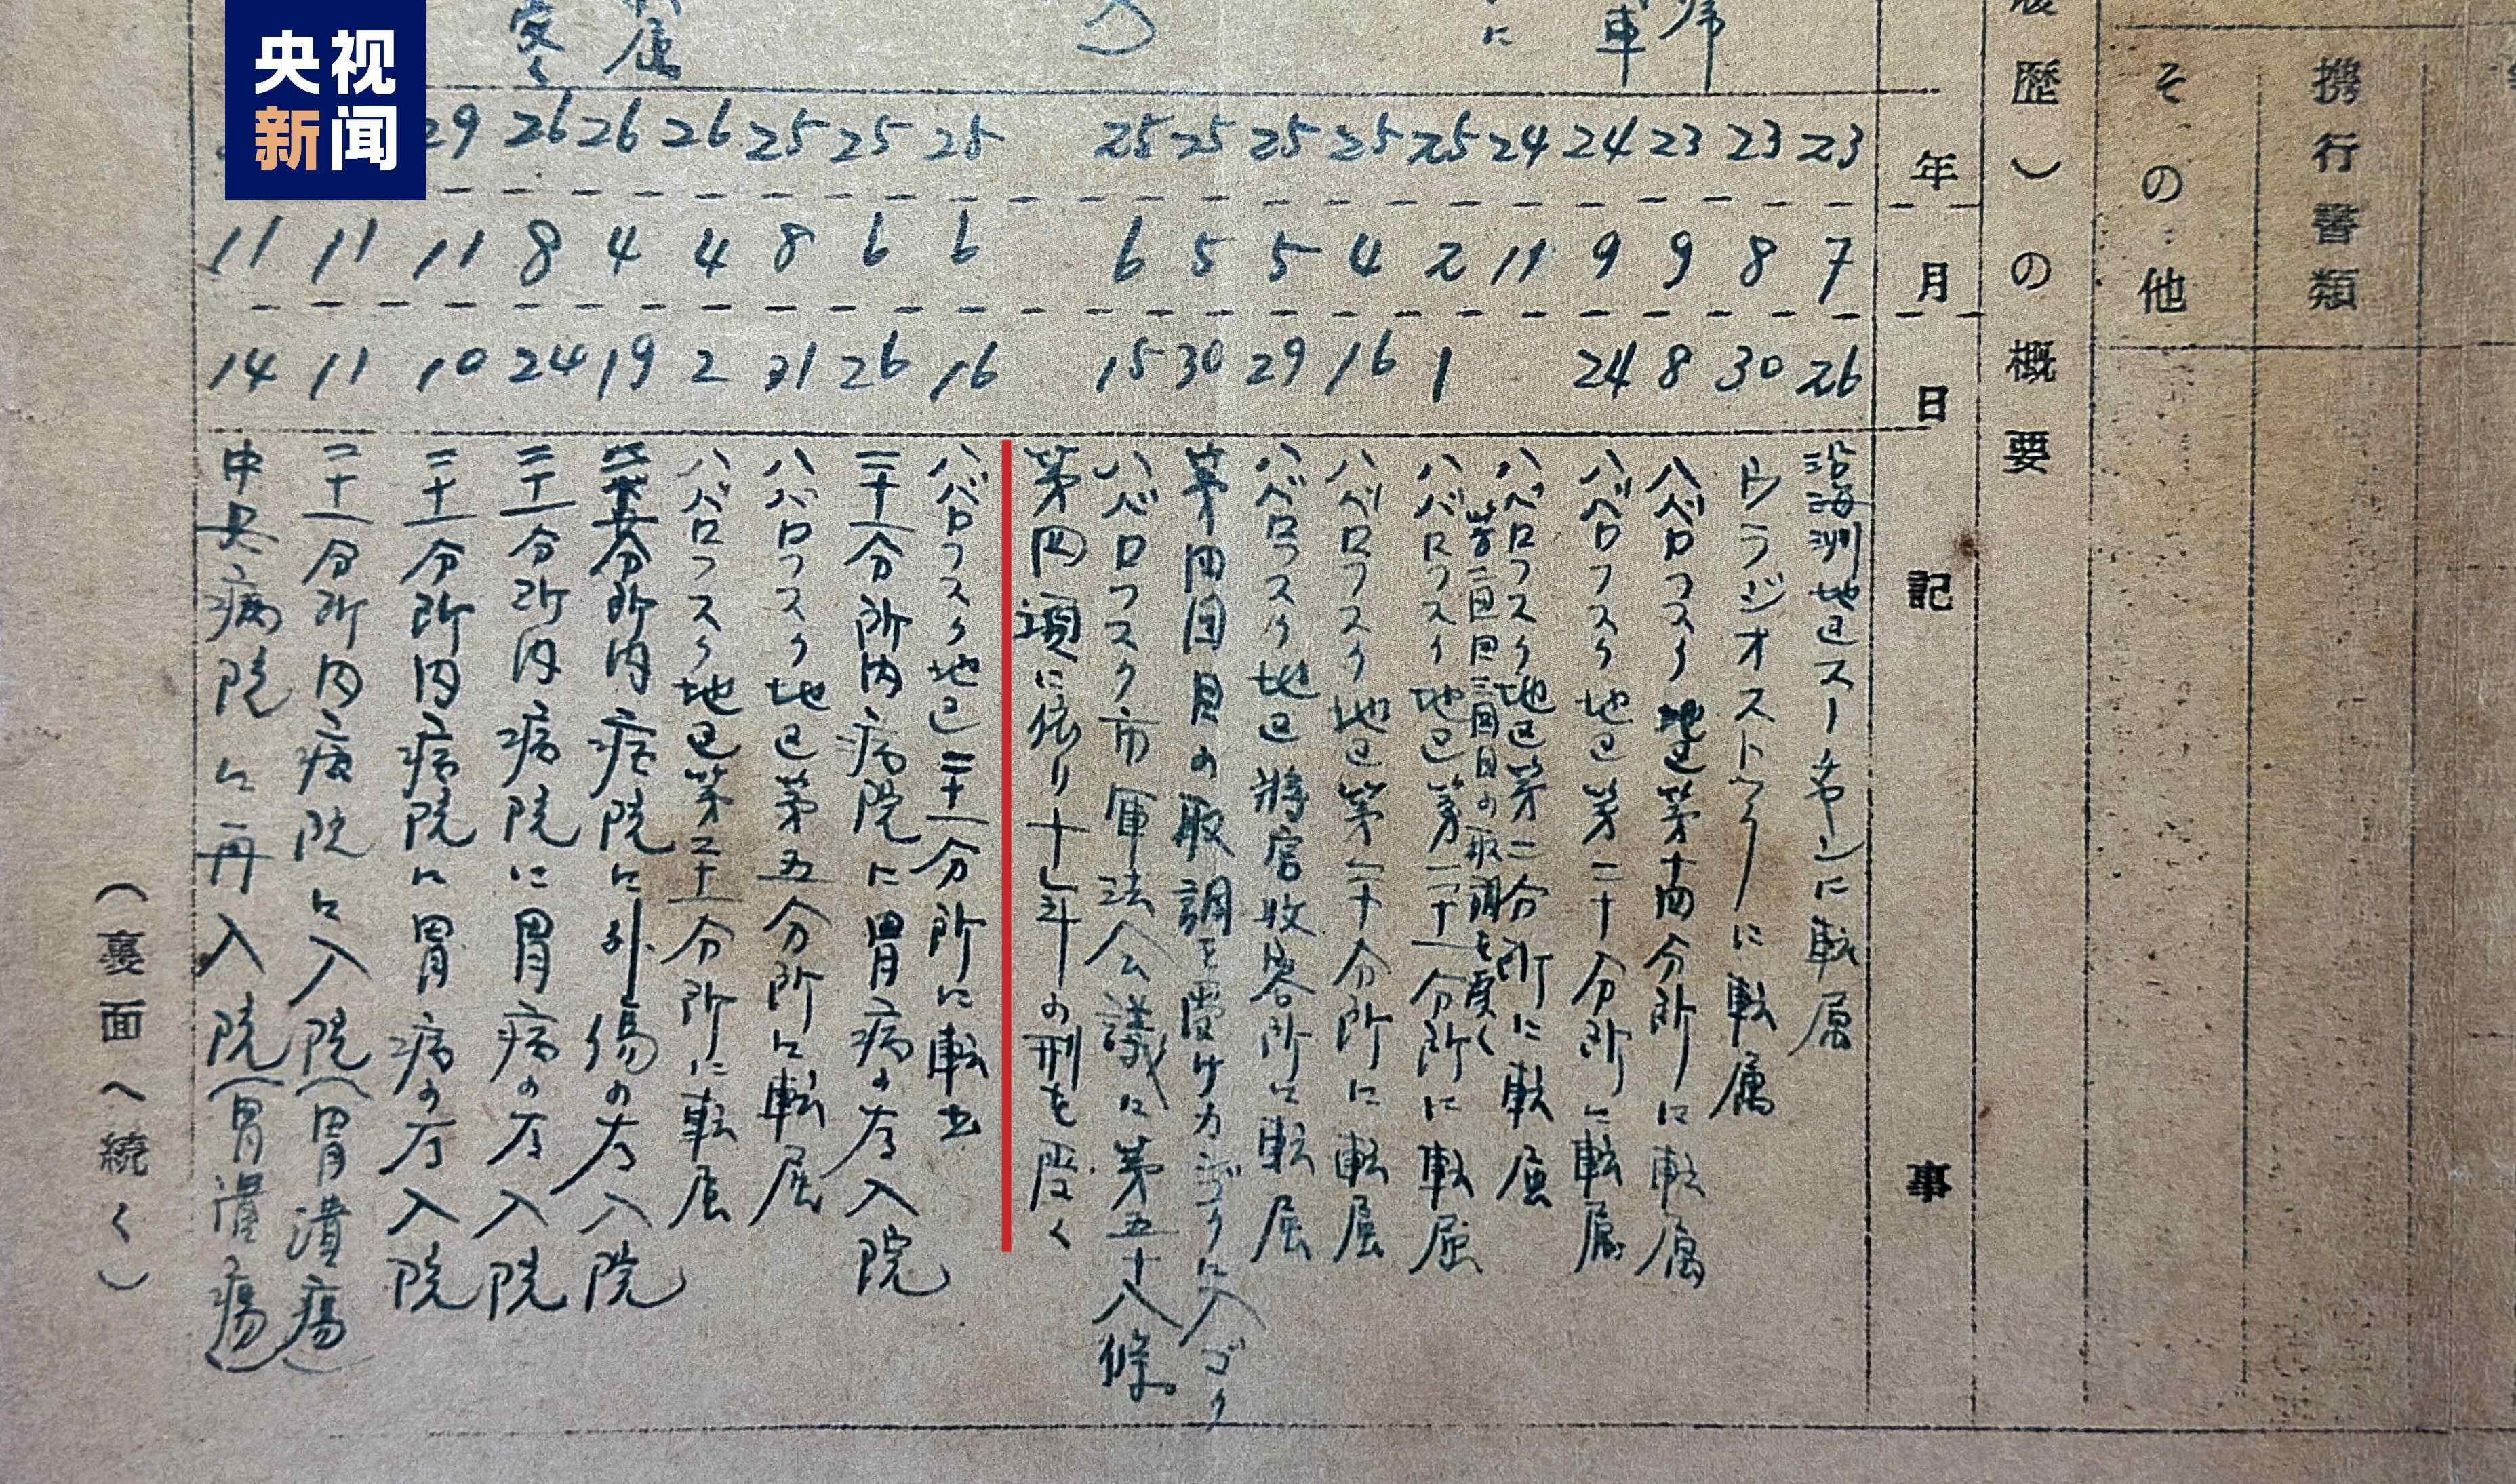 央视
新闻
携行書類
その他
歴)の概要
年
月
日
記
事
23 7 26 沿海州地区スーチャンに転属
23 8 30 ウラジオストックに転属
23 9 8 ハバロフスク地区第十四分所に転属
24 9 24 ハバロフスク地区第二十分所に転属
24 11 ハバロフスク地区第二分所に転属
第二回目三回目の取調を受く
25 2 1 ハバロフスク地区第二十一分所に転属
25 4 16 ハバロフスク地区第二十分所に転属
25 5 29 ハバロフスク地区将官收容所に転属
25 5 30 第四回目の取調を受けカンゴクに入ゴク
25 6 15 ハバロフスク市軍法会議に第五十八條
第四項に依り十年の刑を受く
25 6 16 ハバロフスク地区二十一分所に転出
25 6 26 二十一分所内病院に胃病の為入院
25 8 31 ハバロフスク地区第五分所に転属
26 4 2 ハバロフスク地区第二十一分所に転属
26 4 19 分所内病院に外傷の為入院
26 8 24 二十一分所内病院に胃病の為入院
29 11 10 二十一分所内病院に胃病の為入院
11 11 二十一分所内病院に入院(胃潰瘍)
11 14 中央病院に再入院(胃潰瘍)
(裏面へ続く)